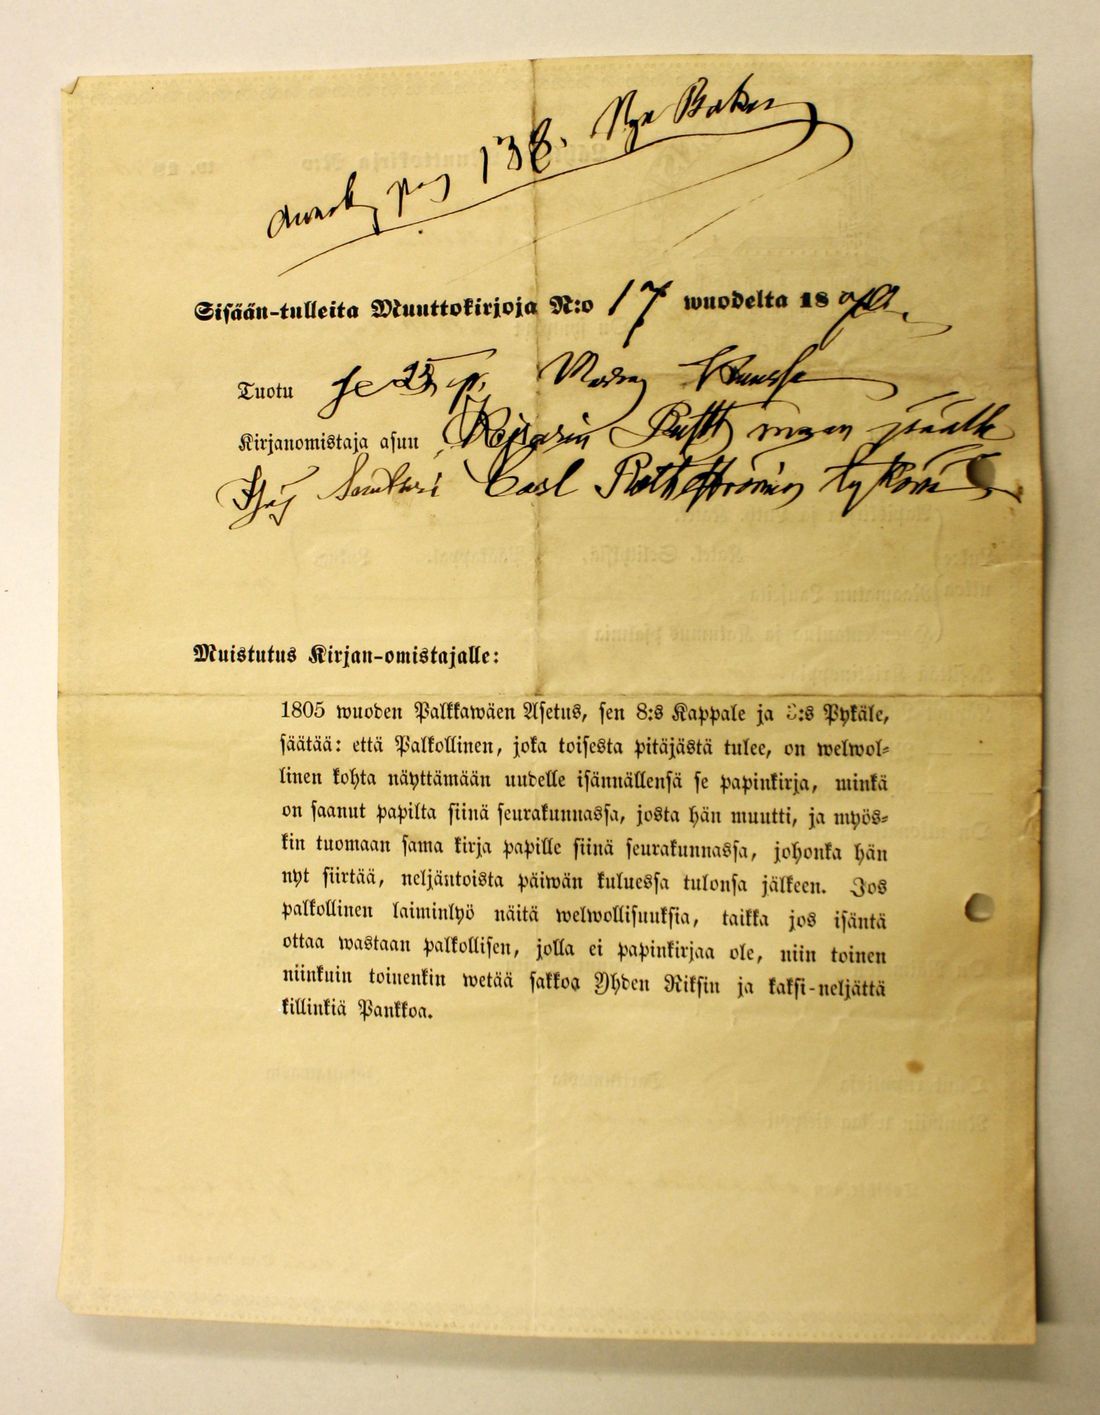 pag 138.
Sisään-tulleita Muuttokirjoja N:o 17 wuodelta 18
Tuotu se 23 p.
Kirjanomistaja asuu maan päälle
Carl tykönä
Muistutus Kirjan-omistajalle:
1805 wuoden Palkkawäen Asetus, sen 8:s Kappale ja 3:s Pykäle,
säätää: että Palkollinen, joka toisesta pitäjästä tulee, on welwol-
linen kohta näyttämään uudelle isännällensä se papinkirja, minkä
on saanut papilta siinä seurakunnassa, josta hän muutti, ja myös-
kin tuomaan sama kirja papille siinä seurakunnassa, johonka hän
nyt siirtää, neljäntoista päiwän kuluessa tulonsa jälkeen. Jos
palkollinen laiminlyö näitä welwollisuuksia, taikka jos isäntä
ottaa wastaan palkollisen, jolla ei papinkirjaa ole, niin toinen
niinkuin toinenkin wetää sakkoa Yhden Riksin ja kaksi-neljättä
killinkiä Pankkoa.